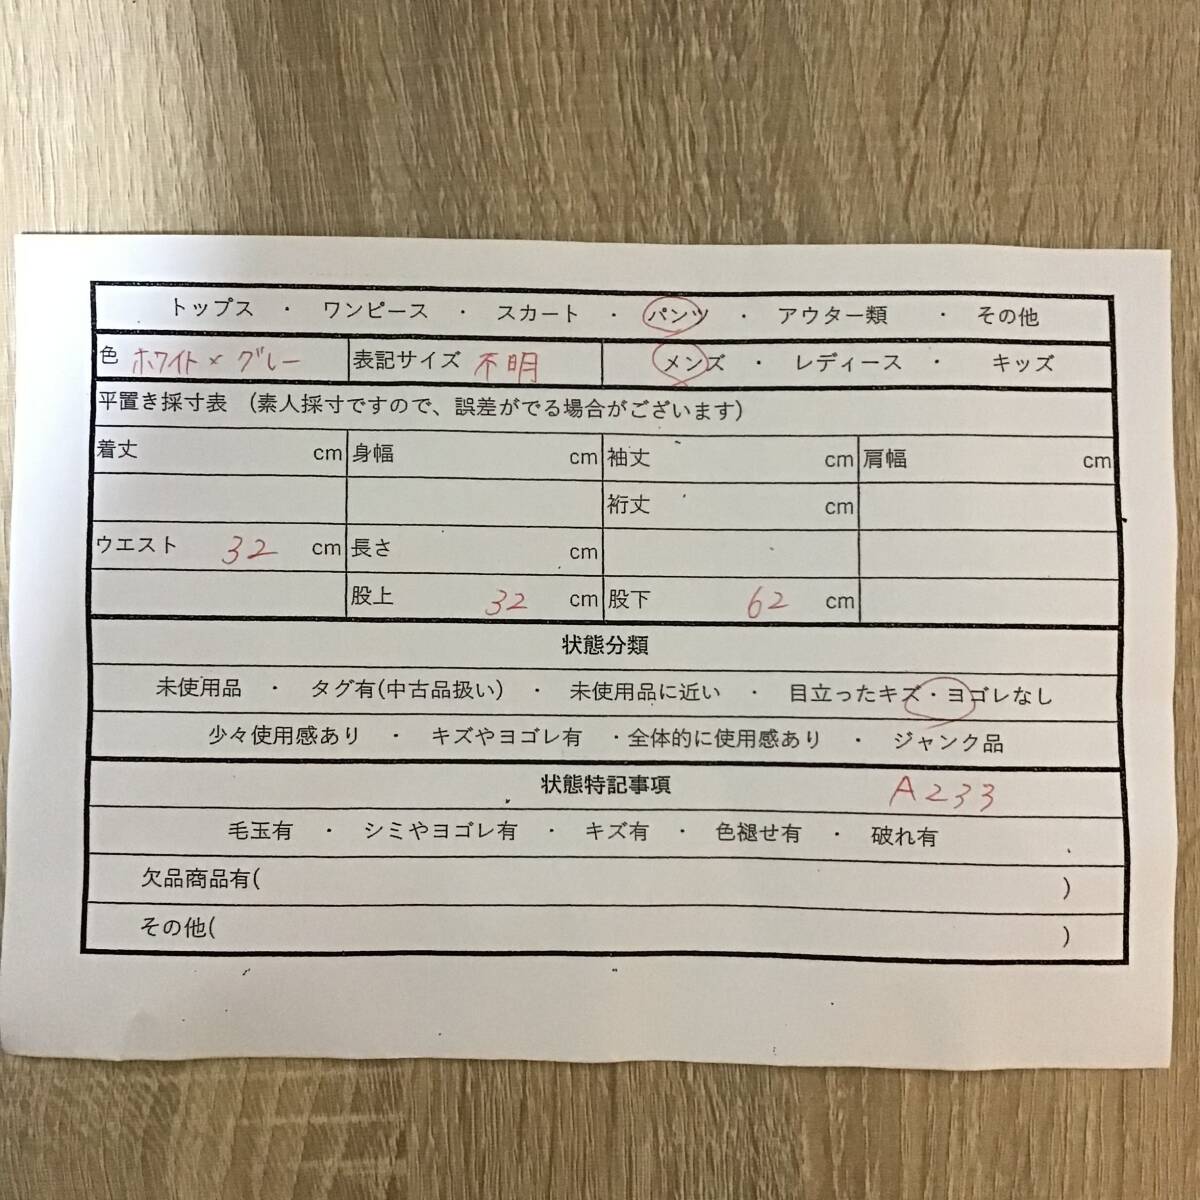 トップス ・ ワンピース ・ スカート ・ パンツ ・ アウター類 ・ その他
色 ホワイト×グレー 表記サイズ 不明 メンズ ・ レディース ・ キッズ
平置き採寸表 (素人採寸ですので、誤差がでる場合がございます)
着丈 cm 身幅 cm 袖丈 cm 肩幅 cm
裄丈 cm
ウエスト 32 cm 長さ cm
股上 32 cm 股下 62 cm
状態分類
未使用品 ・ タグ有(中古品扱い) ・ 未使用品に近い ・ 目立ったキズ・ヨゴレなし
少々使用感あり ・ キズやヨゴレ有 ・全体的に使用感あり ・ ジャンク品
状態特記事項 A233
毛玉有 ・ シミやヨゴレ有 ・ キズ有 ・ 色褪せ有 ・ 破れ有
欠品商品有( )
その他( )